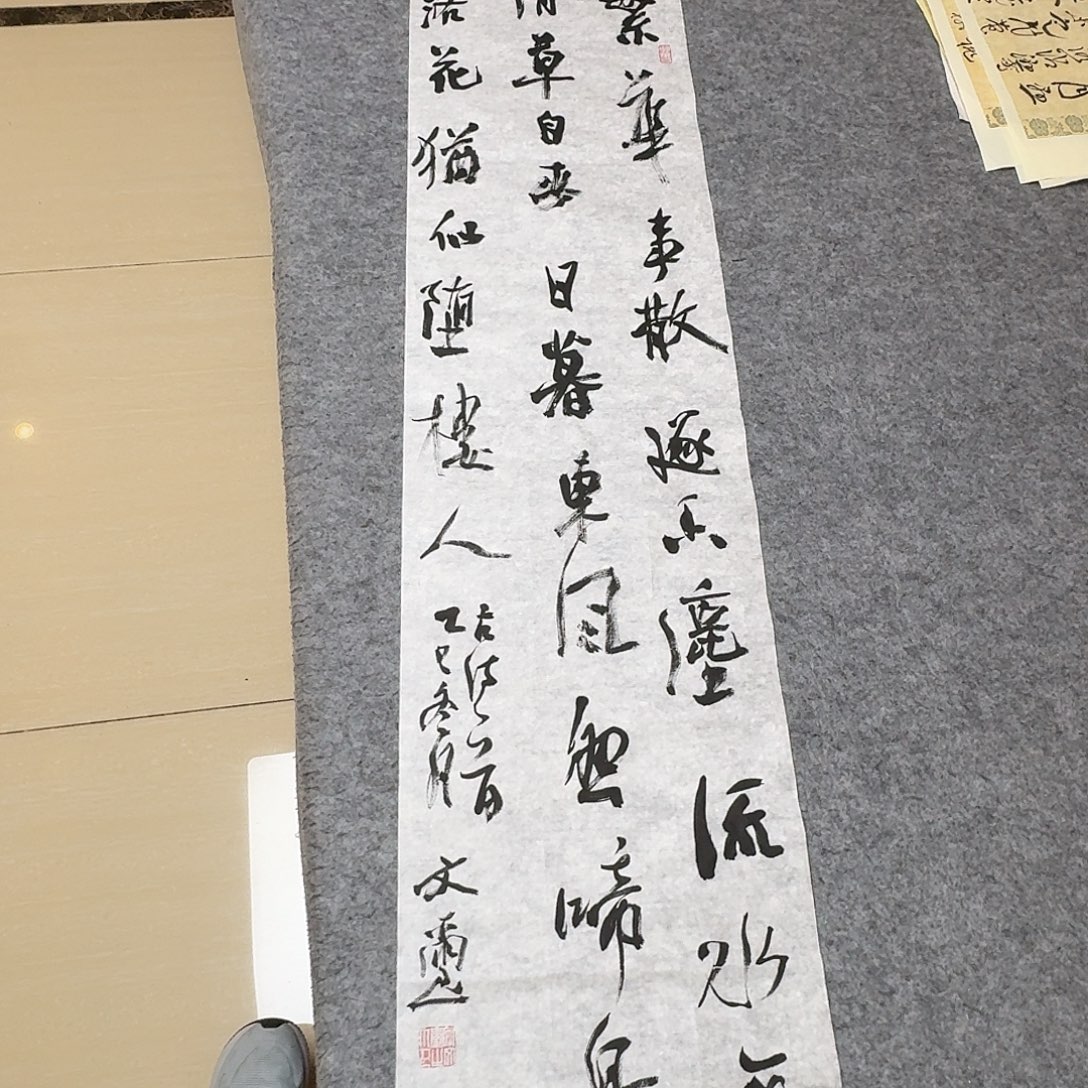 繁華事散逐香塵流水無
情草自春日暮東風怨啼鳥
落花猶似墮樓人
古詩一首
乙巳冬月
文